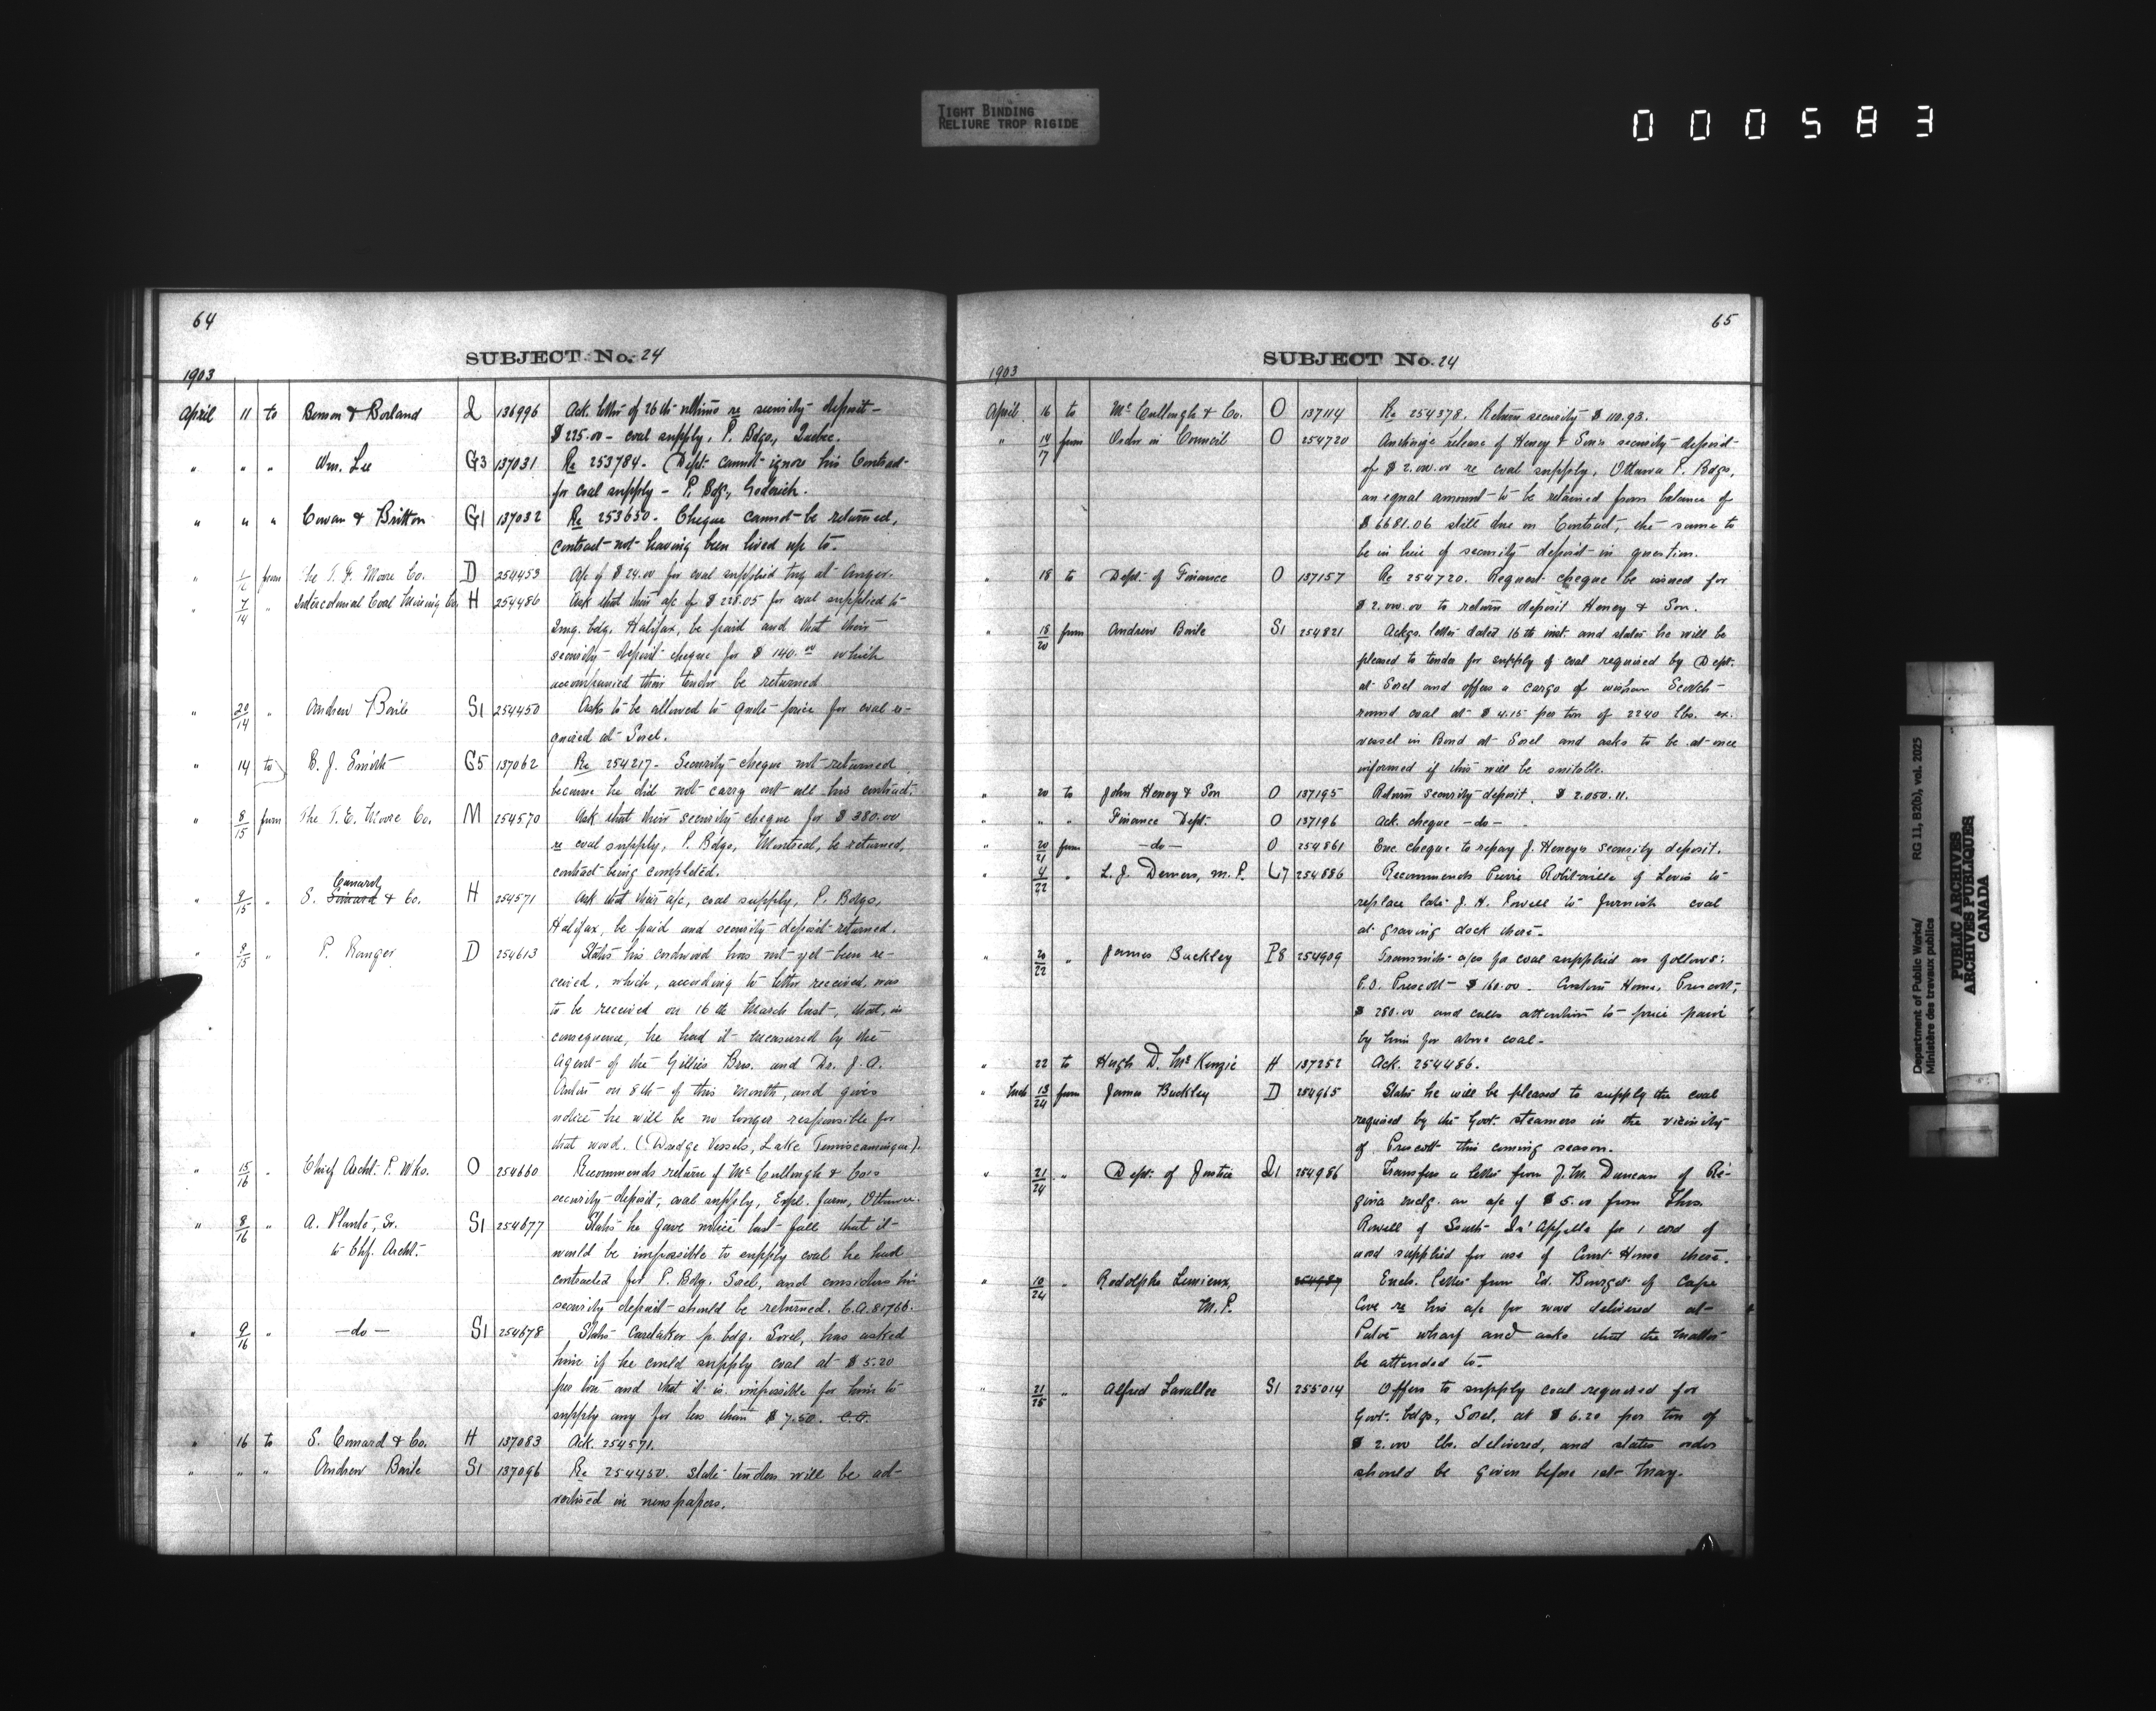 TIGHT BINDING
RELIURE TROP RIGIDE
000583
64
SUBJECT No. 24
1903
April 11 to Benson & Borland Q 136996 Ack. letter of 26th ultimo re security deposit
$225.00 - coal supply, P. Bdgs, Quebec.
" " " Wm. Lee G3 137031 Re 253784. Dept. cannot ignore his Contract
for coal supply - P. Bdg., Goderich.
" " " Cowan & Britton G1 137032 Re 253650. Cheque cannot be returned,
contract not having been lived up to.
" from The T. F. Moore Co. D 254453 A/c of $24.00 for coal supplied tug at
" 7/14 " Intercolonial Coal Mining Co. H 254486 Ask that their a/c of $228.05 for coal supplied to
Img. bdg. Halifax, be paid and that their
security deposit cheque for $140.00 which
accompanied their tender be returned
" 20/14 " Andrew Baile S1 254450 Asks to be allowed to quote price for coal re-
quired at Sorel.
" 14 to B. J. Smith G5 137062 Re 254217. Security cheque not returned
because he did not carry out all his contract.
" 8/15 from The T. E. Moore Co. M 254570 Ask that their security cheque for $380.00
re coal supply, P. Bdgs, Montreal, be returned,
contract being completed.
Cunard
" 9/15 " S. & Co. H 254571 Ask that their a/c, coal supply, P. Bdgs,
Halifax, be paid and security deposit returned.
" 9/15 " P. Ranger D 254613 States his cordwood has not yet been re-
ceived, which, according to letter received, was
to be received on 16th March last, that, in
consequence, he had it measured by the
Agent of the Gillies Bros. and Dr. J. A.
on 8th of this month, and gives
notice he will be no longer responsible for
that wood. (Dredge Vessels, Lake Temiscamingue).
" 15/16 " Chief Archt. P. Wks. O 254660 Recommends return of McCullough & Co's
security deposit, coal supply, Expl. farm, Ottawa.
" 8/16 " A. Plante, Sr. S1 254677 States he gave notice last fall that it
to Chf. Archt. would be impossible to supply coal he had
contracted for P. Bdg. Sorel, and considers his
security deposit should be returned. C.A. 81766.
" 9/16 " -do- S1 254678 States Caretaker p. bdg. Sorel, has asked
him if he could supply coal at $5.20
per ton and that it is impossible for him to
supply any for less than $7.50. C.A.
" 16 to S. Cunard & Co. H 137083 Ack. 254571.
" " " Andrew Baile S1 137096 Re 254450. State tenders will be ad-
vertised in newspapers.
65
SUBJECT No. 24
1903
April 16 to McCullough & Co. O 137114 Re 254378. Return security $110.93.
" 14/17 from Order in Council O 254720 Authorize release of Heney & Sons security deposit
of $2.000.00 re coal supply, Ottawa P. Bdgs,
an equal amount to be retained from balance of
$6681.06 still due on Contract, the same to
be in lieu of security deposit in question.
" 18 to Dept. of Finance O 137157 Re 254720. Request cheque be issued for
$2.000.00 to return deposit Heney & Son.
" 18/20 from Andrew Baile S1 254821 Ackgs. letter dated 16th inst. and states he will be
pleased to tender for supply of coal required by Dept.
at Sorel and offers a cargo of Scotch
round coal at $4.15 per ton of 2240 lbs. ex.
vessel in Bond at Sorel and asks to be at once
informed if this will be suitable.
" 20 to John Heney & Son O 137195 Return security deposit. $2.050.11.
" " Finance Dept. O 137196 Ack. cheque -do-
" 20/21 from -do- O 254861 Enc. cheque to repay J. Heneys security deposit.
" 4/22 " L. J. Demers, M.P. L7 254886 Recommends Robitaille of Levis to
replace late J. H. Powell to furnish coal
at graving dock there.
" 20/22 " James Buckley P8 254909 Transmits a/cs for coal supplied as follows:
P.O. Prescott $160.00. Custom House, Prescott,
$280.00 and calls attention to price paid
by him for above coal.
" 22 to Hugh D. McKenzie H 137252 Ack. 254486.
" 13/24 from James Buckley D 254965 States he will be pleased to supply the coal
required by the Govt. steamers in the vicinity
of Prescott this coming season.
" 21/24 " Dept. of Justice Q1 254986 Transfers a letter from J. M. Duncan of Re-
gina an a/c of $5.00 from Thos.
Rowell of South Qu'Appelle for 1 cord of
wood supplied for use of Court House there.
" 10/24 " Rodolphe Lemieux, 254987 Encls. letter from Ed. Bourget of Cape
M.P. Cove re his a/c for wood delivered at
wharf and asks that the matter
be attended to.
" 21/25 " Alfred Lavallee S1 255014 Offers to supply coal required for
Govt. bdgs, Sorel, at $6.20 per ton of
2.000 lbs. delivered, and states order
should be given before 1st May.
Department of Public Works/
Ministère des travaux publics
RG 11, B2(b), vol. 2025
PUBLIC ARCHIVES
ARCHIVES PUBLIQUES
CANADA